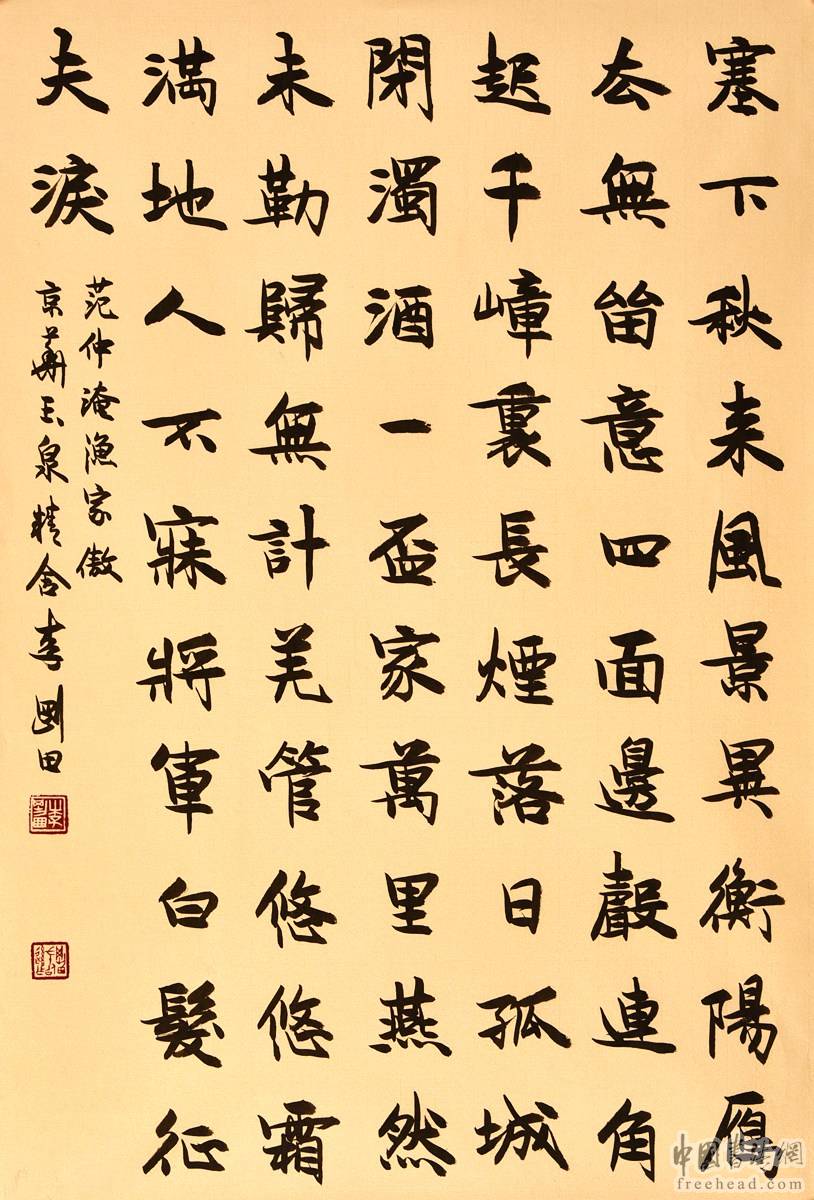 塞下秋来風景異衡陽鴈
去無留意四面邊聲連角
起千嶂裏長煙落日孤城
閉濁酒一盃家萬里燕然
未勒歸無計羌管悠悠霜
滿地人不寐將軍白髮征
夫淚
范仲淹漁家傲
京華玉泉精舍李剛田
中国書法網
freehead.com